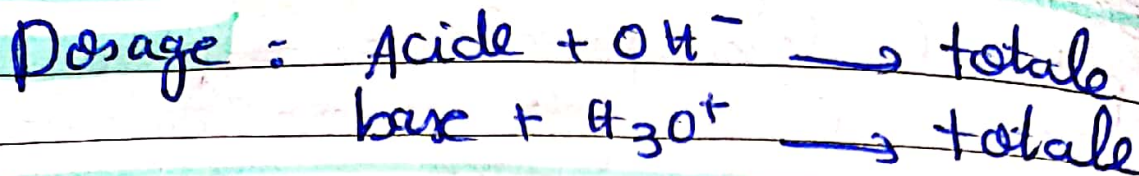 Dosage : Acide + OH⁻ → totale
base + H₃O⁺ → totale